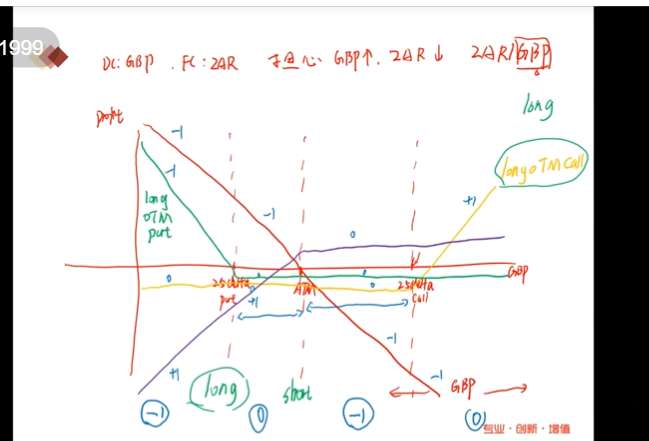 1999
DC: GBP . FC: ZAR 担心 GBP↑. ZAR↓ ZAR/GBP
long
profit
-1
long OTM call
-1
+1
long
OTM
put
-1
0
0
0
0
GBP
25delta
put
0
+1
ATM
0
25delta
call
-1
+1
-1
GBP
long
short
-1
0
-1
0
专业·创新·增值